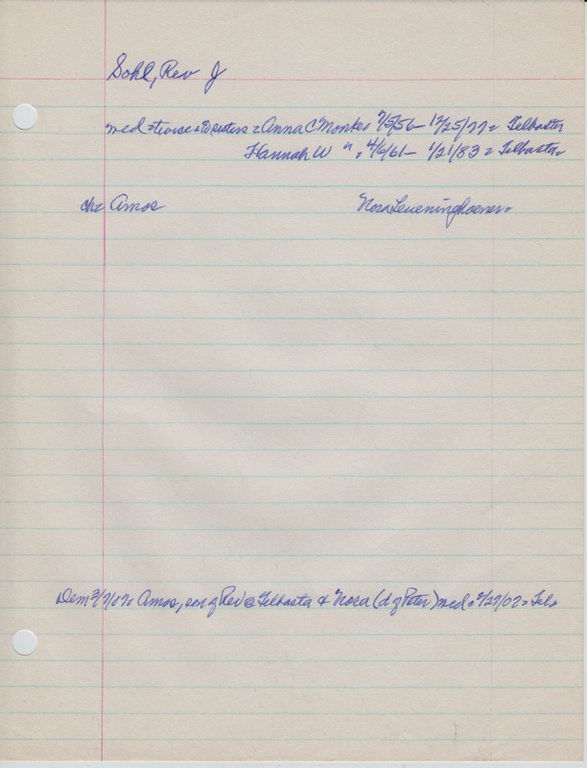 Sohl, Rev J
med = twice = sisters = Anna C Monke = 9/5/56 – 12/25/77 = Telbasta
Hannah W " = 4/6/61 – 1/21/83 = Telbasta =
ch = Amos Nora Leueninghoener =
Dem 3/ Amos, son of Rev @ Telbasta & Nora (d of Peter) med = 2/27/02 = Tel =